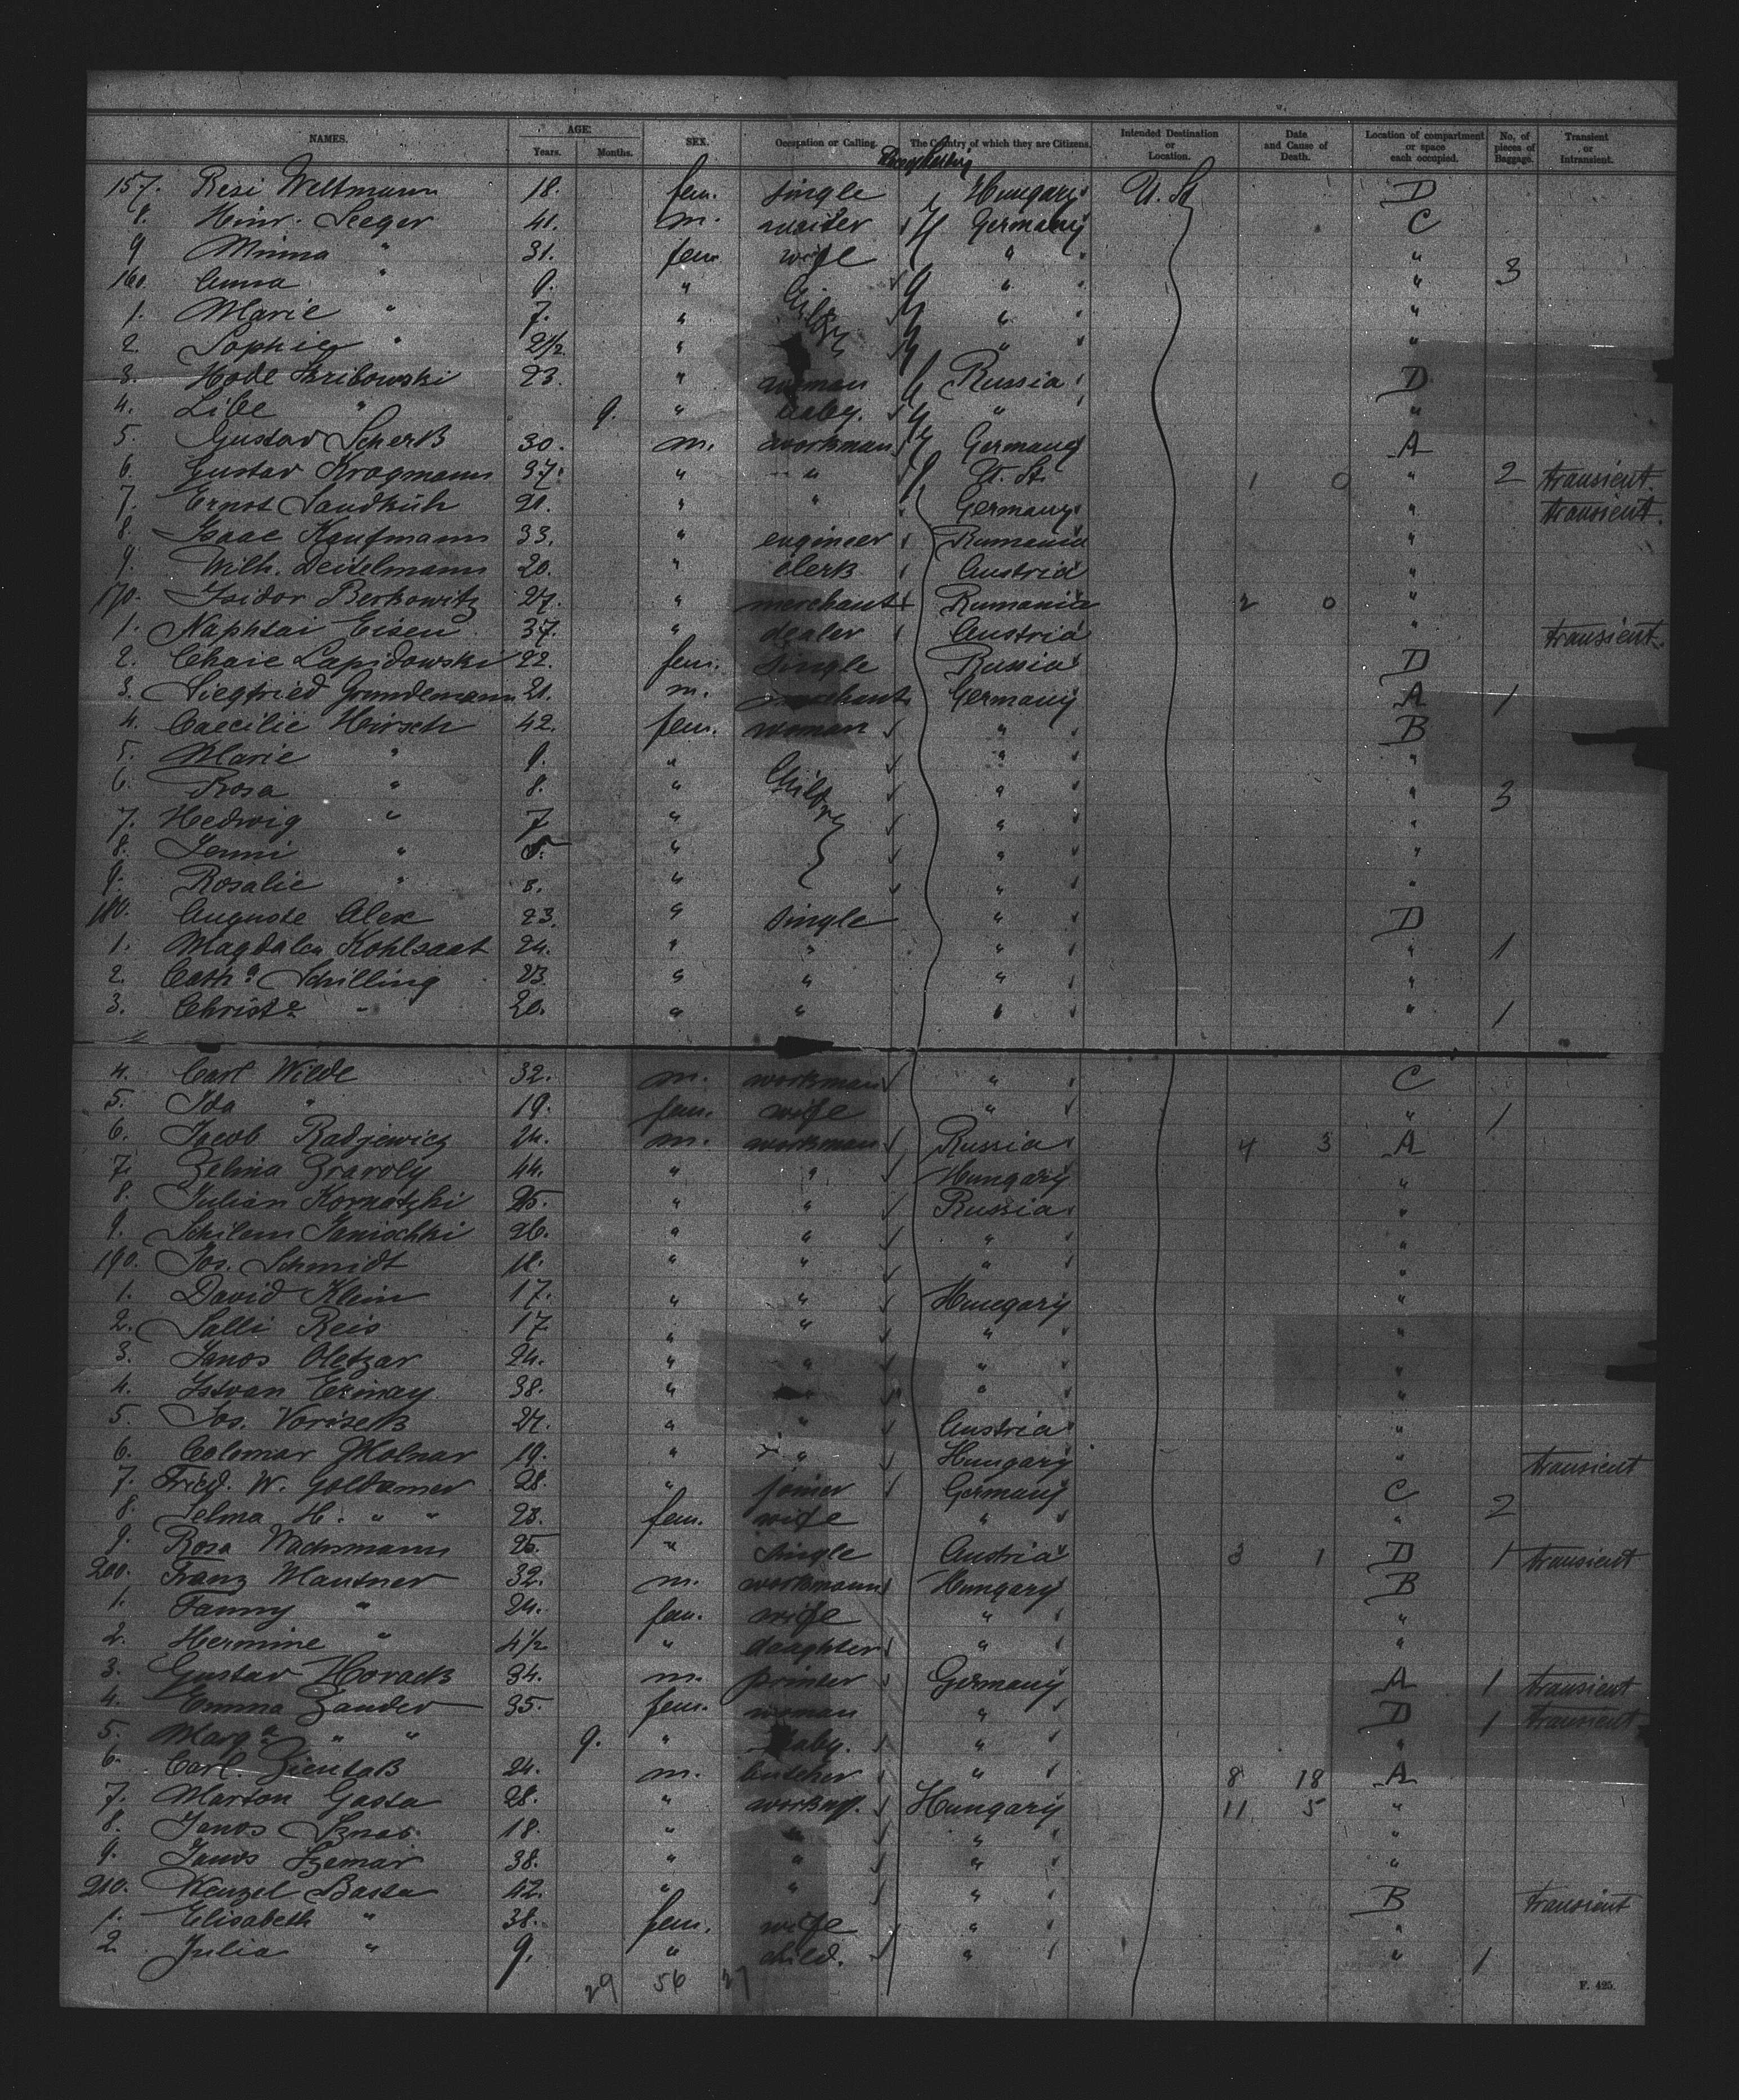 NAMES. AGE: Years. Months. SEX. Occupation or Calling. The Country of which they are Citizens. Intended Destination or Location. Date and Cause of Death. Location of compartment or space each occupied. No. of pieces of Baggage. Transient or Intransient.
157. Resi Weltmann 18. fem. single Hungary U. St D
8. Heinr. Seeger 41. m. waiter Germany C
9 Minna " 31. fem. wife " " 3
160. Anna " 9. " " "
1. Marie " 7. " " "
2. Sophie " 2 1/2 " " "
3. Hode 23. " woman Russia D
4. Libe " 9. " baby. " "
5. Gustav Scherk 30. m. workman Germany A
6. Gustav Krogmann 37. " " U. St. 1 0 " 2 transient.
7. Ernst Sandkuh 21. " " Germany " transient.
8. Isaac Kaufmann 33. " engineer Rumania "
9. Wilh. Deitelmann 20. " clerk Austria "
170. Isidor Berkowitz 27. " merchant Rumania 2 0 "
1. Naphtai Eisen 37. " dealer Austria " transient.
2. Chaie Lapidowski 22. fem. single Russia D
3. Siegfried Grundemann 21. m. merchant Germany A 1
4. Caecilie Hirsch 42. fem. woman " B
5. Marie " 9. " " "
6. Rosa " 8. " " " 3
7. Hedwig " 7 " " "
8. Jenni " 5. " " "
9. Rosalie " 3. " " "
180. Auguste Alex 23. " single " D
1. Magdalen Kohlsaat 24. " " " " 1
2. Cath.a Schilling 23. " " " "
3. Christ.e " 20. " " " " 1
4. Carl Wilde 32. m. workman " C
5. Ida " 19. fem. wife " " 1
6. Jacob Radjewicz 24. m. workman Russia 4 3 A
7. Zelma Zravoly 44. " " Hungary "
8. Julian Kornatzki 25. " " Russia "
9. Schilem Janischki 26. " " " "
190. Jos. Schmidt 18. " " " "
1. David Klein 17. " " Hungary "
2. Salli Reis 17 " " " "
3. Janos Oletzar 24. " " " "
4. Istvan 38. " " " "
5. Jos. Vorisek 27. " " Austria "
6. Colomar Molnar 19. " " Hungary " transient
7. Fried. W. Goldamer 28. " joiner Germany C
8. Selma H. " " 23. fem. wife " " 2
9. Rosa Wachsmann 25. " single Austria 3 1 D 1 transient
200. Franz Mautner 32. m. workmann Hungary B
1. Fanny " 24. fem. wife " "
2. Hermine " 4 1/2 " daughter " "
3. Gustav Horack 34. m. printer Germany A 1 transient
4. Emma Zander 35. fem. woman " D 1 transient
5. Marg.a " " 9. " baby. " "
6. Carl Zientak 24. m. butcher " 8 18 A
7. Marton Gasta 28. " workm. Hungary 11 5 "
8. Janos 18. " " " "
9. Janos Szemar 38. " " " "
210. Wenzel Basta 42. " " " B transient
1. Elisabeth " 38. fem. wife " "
2. Julia " 9. " child. " " 1
29 56 27
F. 425.